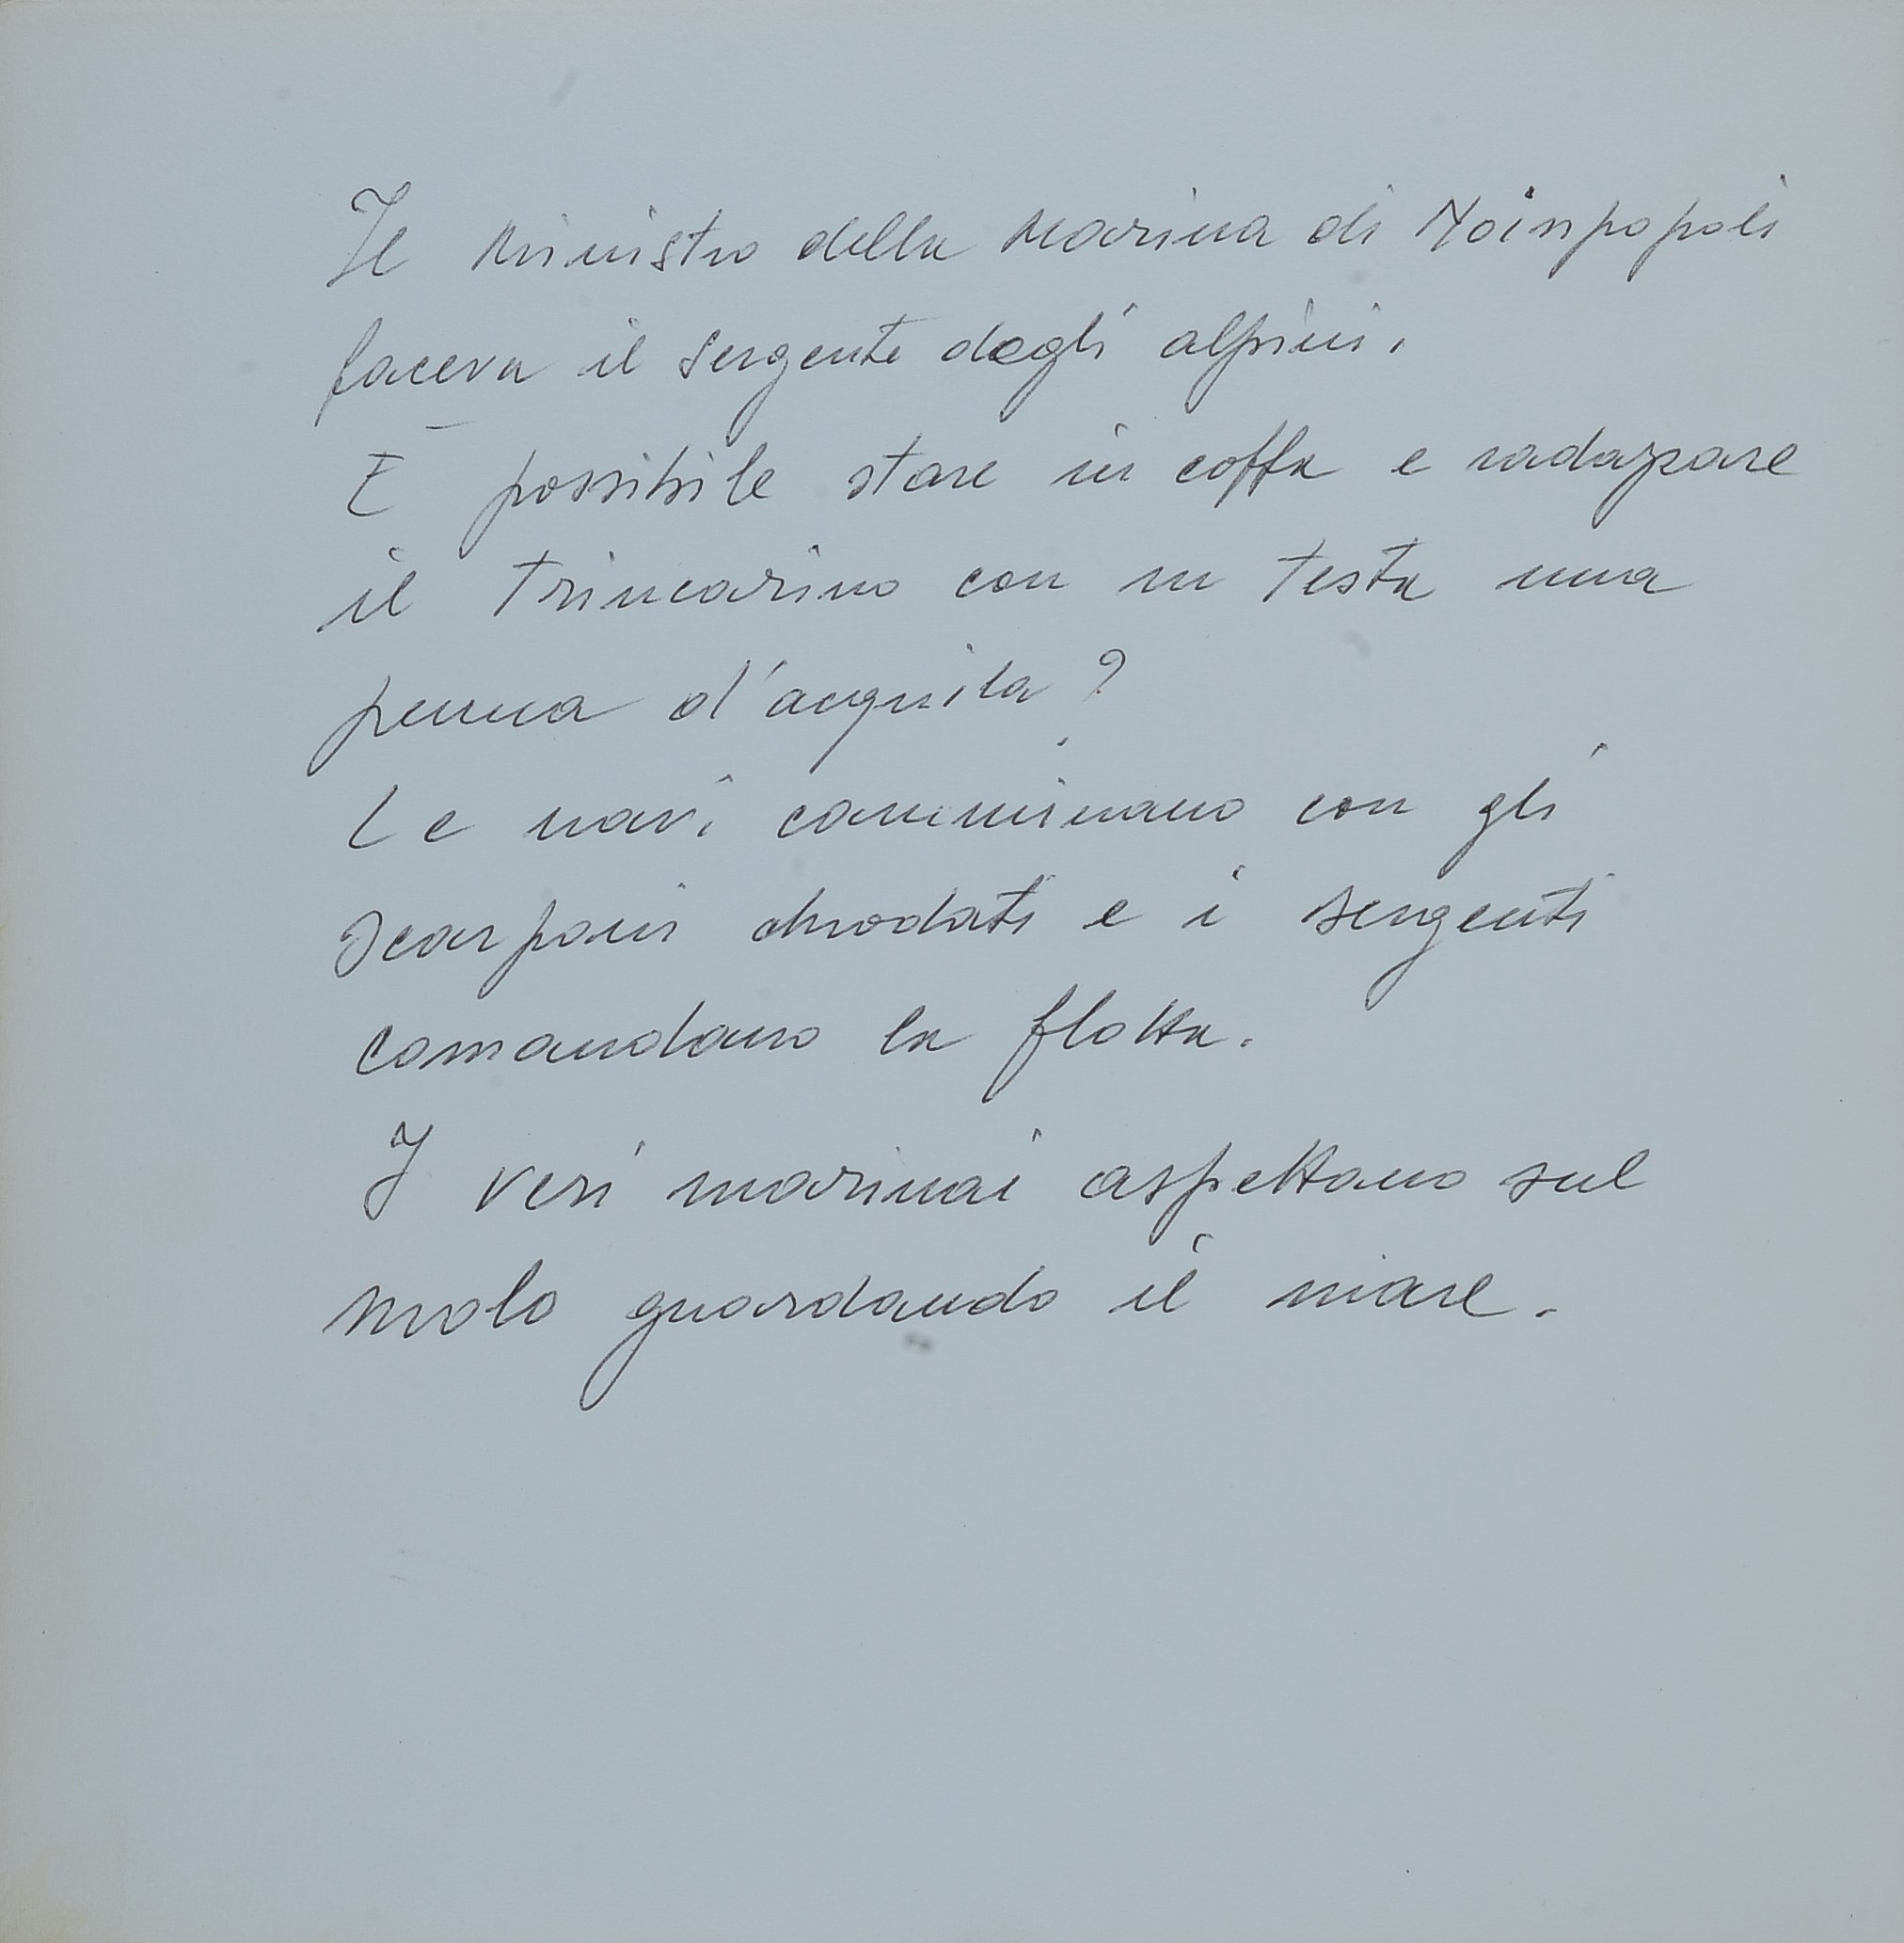 Il Ministro della Marina di Noinpopoli
faceva il sergente degli alpini.
È possibile stare in coffa e radazzare
il trincarino con in testa una
penna d'acquila?
Le navi camminano con gli
scarponi chiodati e i sergenti
comandano la flotta.
I veri marinai aspettano sul
molo guardando il mare.